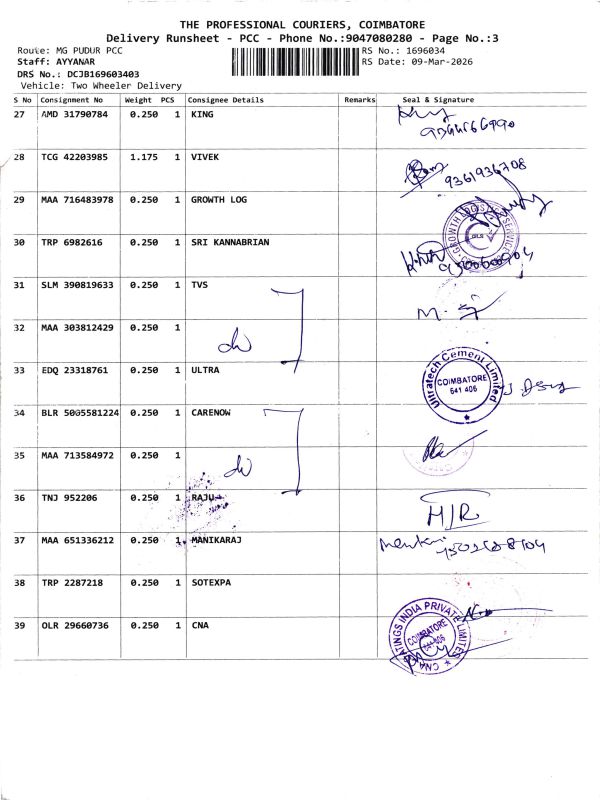 THE PROFESSIONAL COURIERS, COIMBATORE
Delivery Runsheet - PCC - Phone No.:9047080280 - Page No.:3
Route: MG PUDUR PCC
RS No.: 1696034
Staff: AYYANAR
RS Date: 09-Mar-2026
DRS No.: DCJB169603403
Vehicle: Two Wheeler Delivery
S No Consignment No Weight PCS Consignee Details Remarks Seal & Signature
27 AMD 31790784 0.250 1 KING
28 TCG 42203985 1.175 1 VIVEK
9361936708
29 MAA 716483978 0.250 1 GROWTH LOG
30 TRP 6982616 0.250 1 SRI KANNABRIAN
31 SLM 390819633 0.250 1 TVS
32 MAA 303812429 0.250 1
33 EDQ 23318761 0.250 1 ULTRA
Ultratech Cement Limited
COIMBATORE
641 406
34 BLR 5005581224 0.250 1 CARENOW
35 MAA 713584972 0.250 1
36 TNJ 952206 0.250 1 RAJU
37 MAA 651336212 0.250 1 MANIKARAJ
38 TRP 2287218 0.250 1 SOTEXPA
39 OLR 29660736 0.250 1 CNA
COIMBATORE